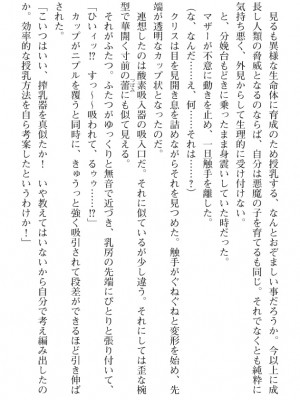 見るも異様な生命体に育成のため授乳する、なんとおぞましい事だろうか。今以上に成
長し人類の脅威となるのならば、自分は悪魔の子を育てるも同じ。それでなくとも純粋に
気持ち悪く、外見からして生理的に受け付けない。
と、分娩台もどきに乗ったまま身震いしていた時だった。
マザーが不意に動きを止め、一旦触手を離した。
「な、なんだ……え、何……それは……?」
クリスは目を見開き息を詰めながらそれを見つめた。触手がぐねぐねと変形を始め、先
端が透明なカップ状となったのだ。
連想したのは酸素吸入器の吸入口だ。それに似ているが少し違う。それにしては歪な椀
型で華開く寸前の蕾にも似て見える。
それがふたつ。ふたつがゆらりと無音で近づき、乳房の先端にぴとりと張り付いて、
「ひぃィッ!? すっ〜吸われて、るゥゥ……!?」
カップがニプルを覆うと同時に、きゅうっと強く吸引されて段差ができるほど引き伸ば
された。
「こいつはいい、搾乳器を真似たか! いや教えてはいないから自分で考え編み出したの
か。効率的な授乳方法を自ら考案したというわけか!」